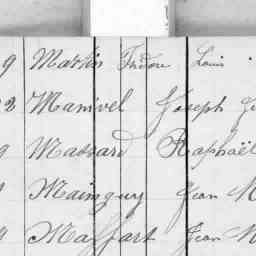 9 Martin Isidore Louis
2 Manivel Joseph
9 Massard Raphaël
Mainguy Jean M
Maffart Jean M